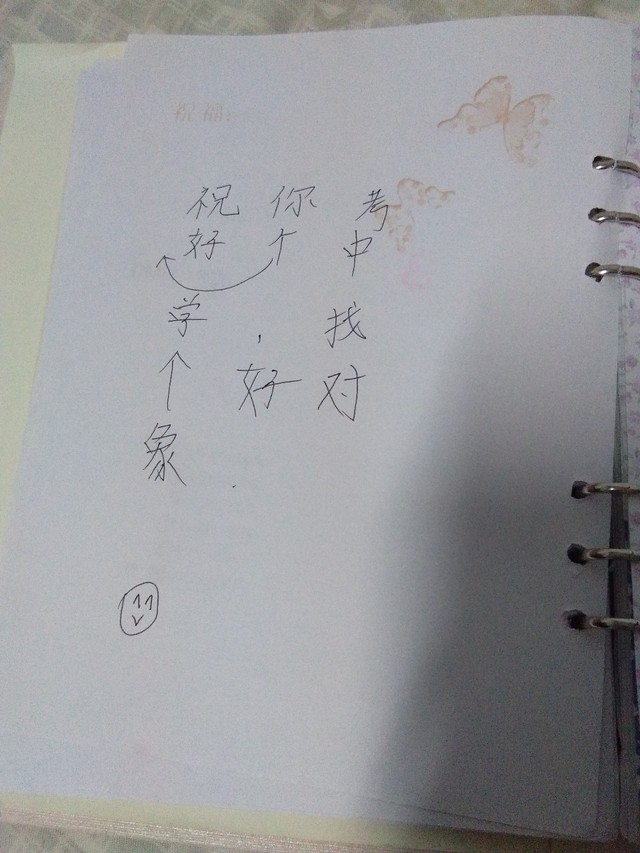 祝福:
祝 你 考
好 个 中
学 , 找
好 对
象 .